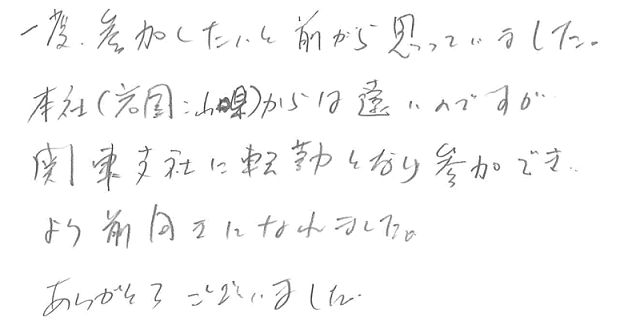 一度、参加したいと前から思っていました。
本社(岩国:山県)からは遠いのですが
関東支社に転勤となり参加でき..
より前向きになれました。
ありがとうございました.